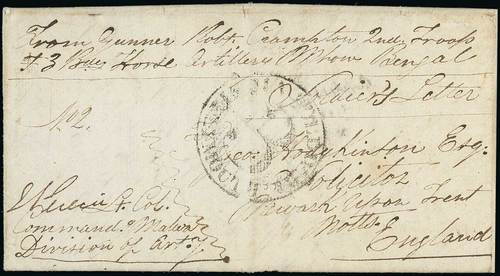 From Gunner Robt Crampton 2nd Troop
3 Bde Horse Artillery Mhow Bengal
Soldier's Letter
No 2.
Geo. Hodgkinson Esq.
Solicitor
Newark Upon Trent
Notts
England
Lt. Col.
Command.g Malwa
Division of Arty.